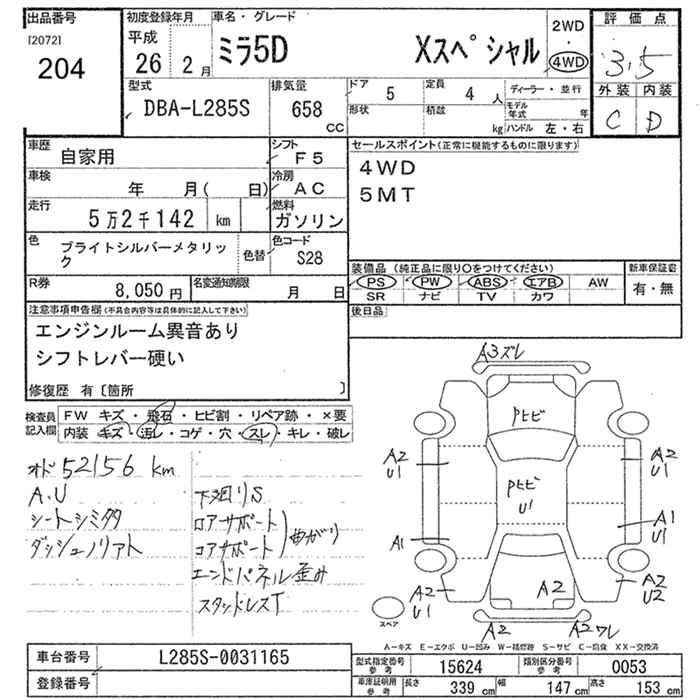 出品番号
[2072]
204
初度登録年月
平成
26 2 月
車名・グレード
ミラ5D Xスペシャル
2WD
・
4WD
評価点
3.5
外装 内装
C D
型式
DBA-L285S
排気量
658
CC
ドア 5
定員 4 人
形状
積載 kg
ディーラー・並行
モデル年式 年
ハンドル 左・右
車歴 自家用
シフト F5
車検 年 月( 日)
冷房 AC
走行 5万2千142 km
燃料 ガソリン
色 ブライトシルバーメタリック
色替
色コード S28
R券 8,050円
名変通知期限 月 日
セールスポイント(正常に機能するものに限ります)
4WD
5MT
装備品(純正品に限り〇をつけてください)
PS PW ABS エアB AW
SR ナビ TV カワ
新車保証書
有・無
後日品
注意事項申告欄(不具合内容等は具体的に記入して下さい)
エンジンルーム異音あり
シフトレバー硬い
修復歴 有〔箇所 〕
検査員記入欄
FW キズ・飛石・ヒビ割・リペア跡・×要
内装 キズ・汚レ・コゲ・穴・スレ・キレ・破レ
オド 52156 km
A.U
シートシミタタ
下廻りS
ロアーサポート
コアサポート
曲がり
エンドパネル歪み
スタッドレスT
A3ズレ
Pヒビ
Pヒビ
U1
A2
U1
A1
A2
U1
A2
U1
A1
U1
A2
U2
A2
A2
A2ワレ
スペア
A-キズ E-エクボ U-凹み W-補修跡 S-サビ C-腐食 XX-交換済
車台番号 L285S-0031165
登録番号
型式指定番号参考 15624
類別区分番号参考 0053
車庫証明用参考 長さ 339 cm 幅 147 cm 高さ 153 cm